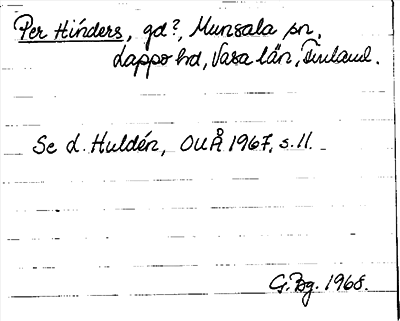 Per Hínders, gd?, Munsala sn,
Lappo hd, Vasa län, Finland.
Se L. Huldén, OUÅ 1967, s. 11.
G. Bg. 1968.